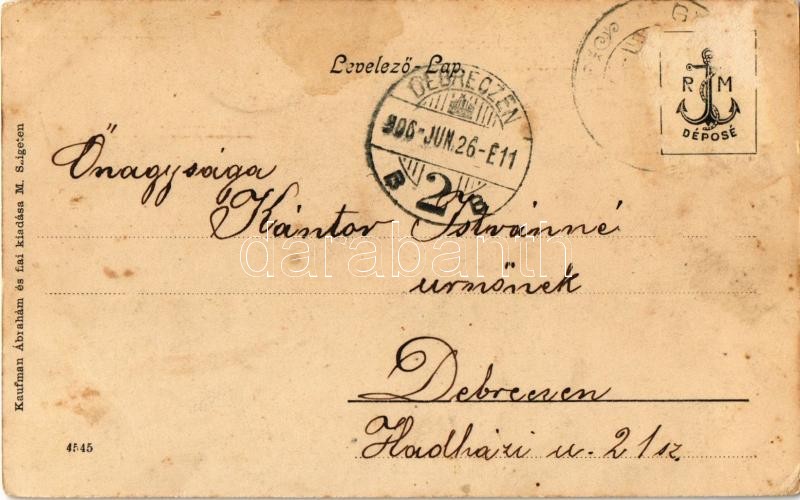 Levelező-Lap.
DEBRECZEN
906-JUN.26-É11
B 2 B
R M
DÉPOSÉ
Őnagysága
Kántor Istvánné
urnőnek
Debreczen
Hadházi u. 21 sz.
Kaufman Ábrahám és fiai kiadása M. Szigeten
4545
darabanth